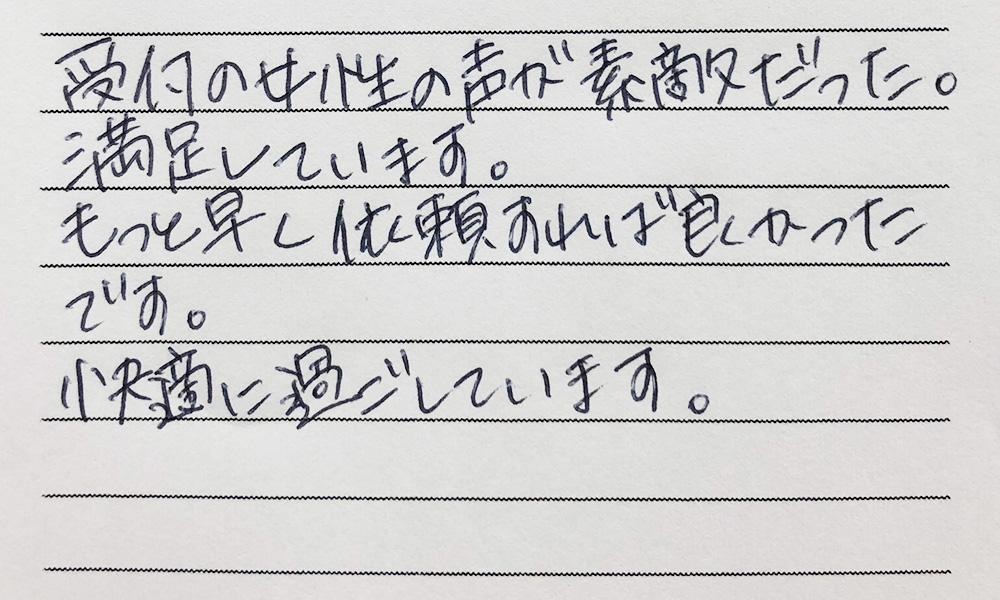 受付の女性の声が素敵だった。
満足しています。
もっと早く依頼すれば良かった
です。
快適に過ごしています。